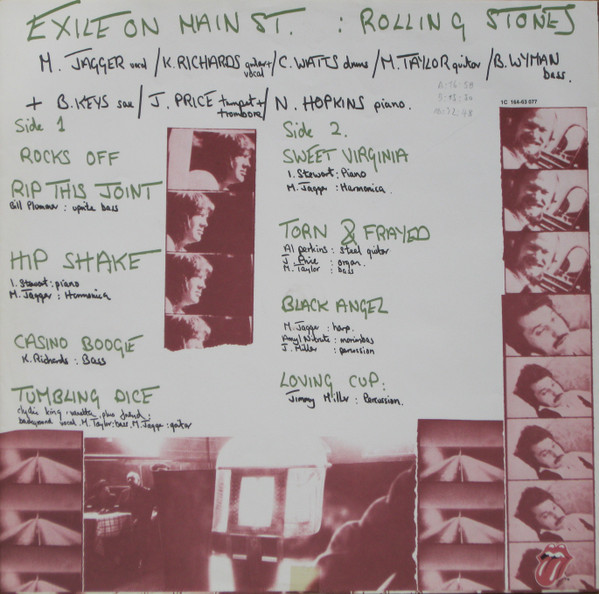 EXILE ON MAIN ST. : ROLLING STONES
M. JAGGER vocal / K. RICHARDS guitar + vocal / C. WATTS drums / M. TAYLOR guitar / B. WYMAN bass.
+ B. KEYS sax / J. PRICE trumpet + trombone / N. HOPKINS piano.
1C 164-63 077
Side 1
ROCKS OFF
RIP THIS JOINT
Bill Plummer : uprite bass
HIP SHAKE
I. Stewart : piano
M. Jagger : Harmonica
CASINO BOOGIE
K. Richards : Bass
TUMBLING DICE
clydie king, vanetta, plus friend :
background vocal. M. Taylor : bass. M. Jagger : guitar
Side 2.
SWEET VIRGINIA
I. Stewart : Piano
M. Jagger : Harmonica.
TORN & FRAYED
Al perkins : steel guitar
J. Price : organ.
M. Taylor : bass
BLACK ANGEL
M. Jagger : harp.
Amyl Nitrate : marimbas
J. Miller : percussion
LOVING CUP :
Jimmy Miller : Percussion.